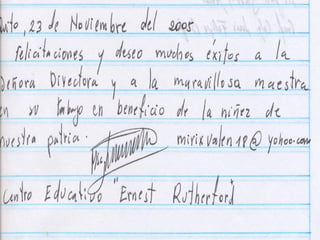 Quito, 23 de Noviembre del 2005
felicitaciones y deseo muchos éxitos a la
Señora Directora y a la maravillosa maestra
en su trabajo en beneficio de la niñez de
nuestra patria. mirixvalen18@yahoo.com
Centro Educativo "Ernest Rutherford"